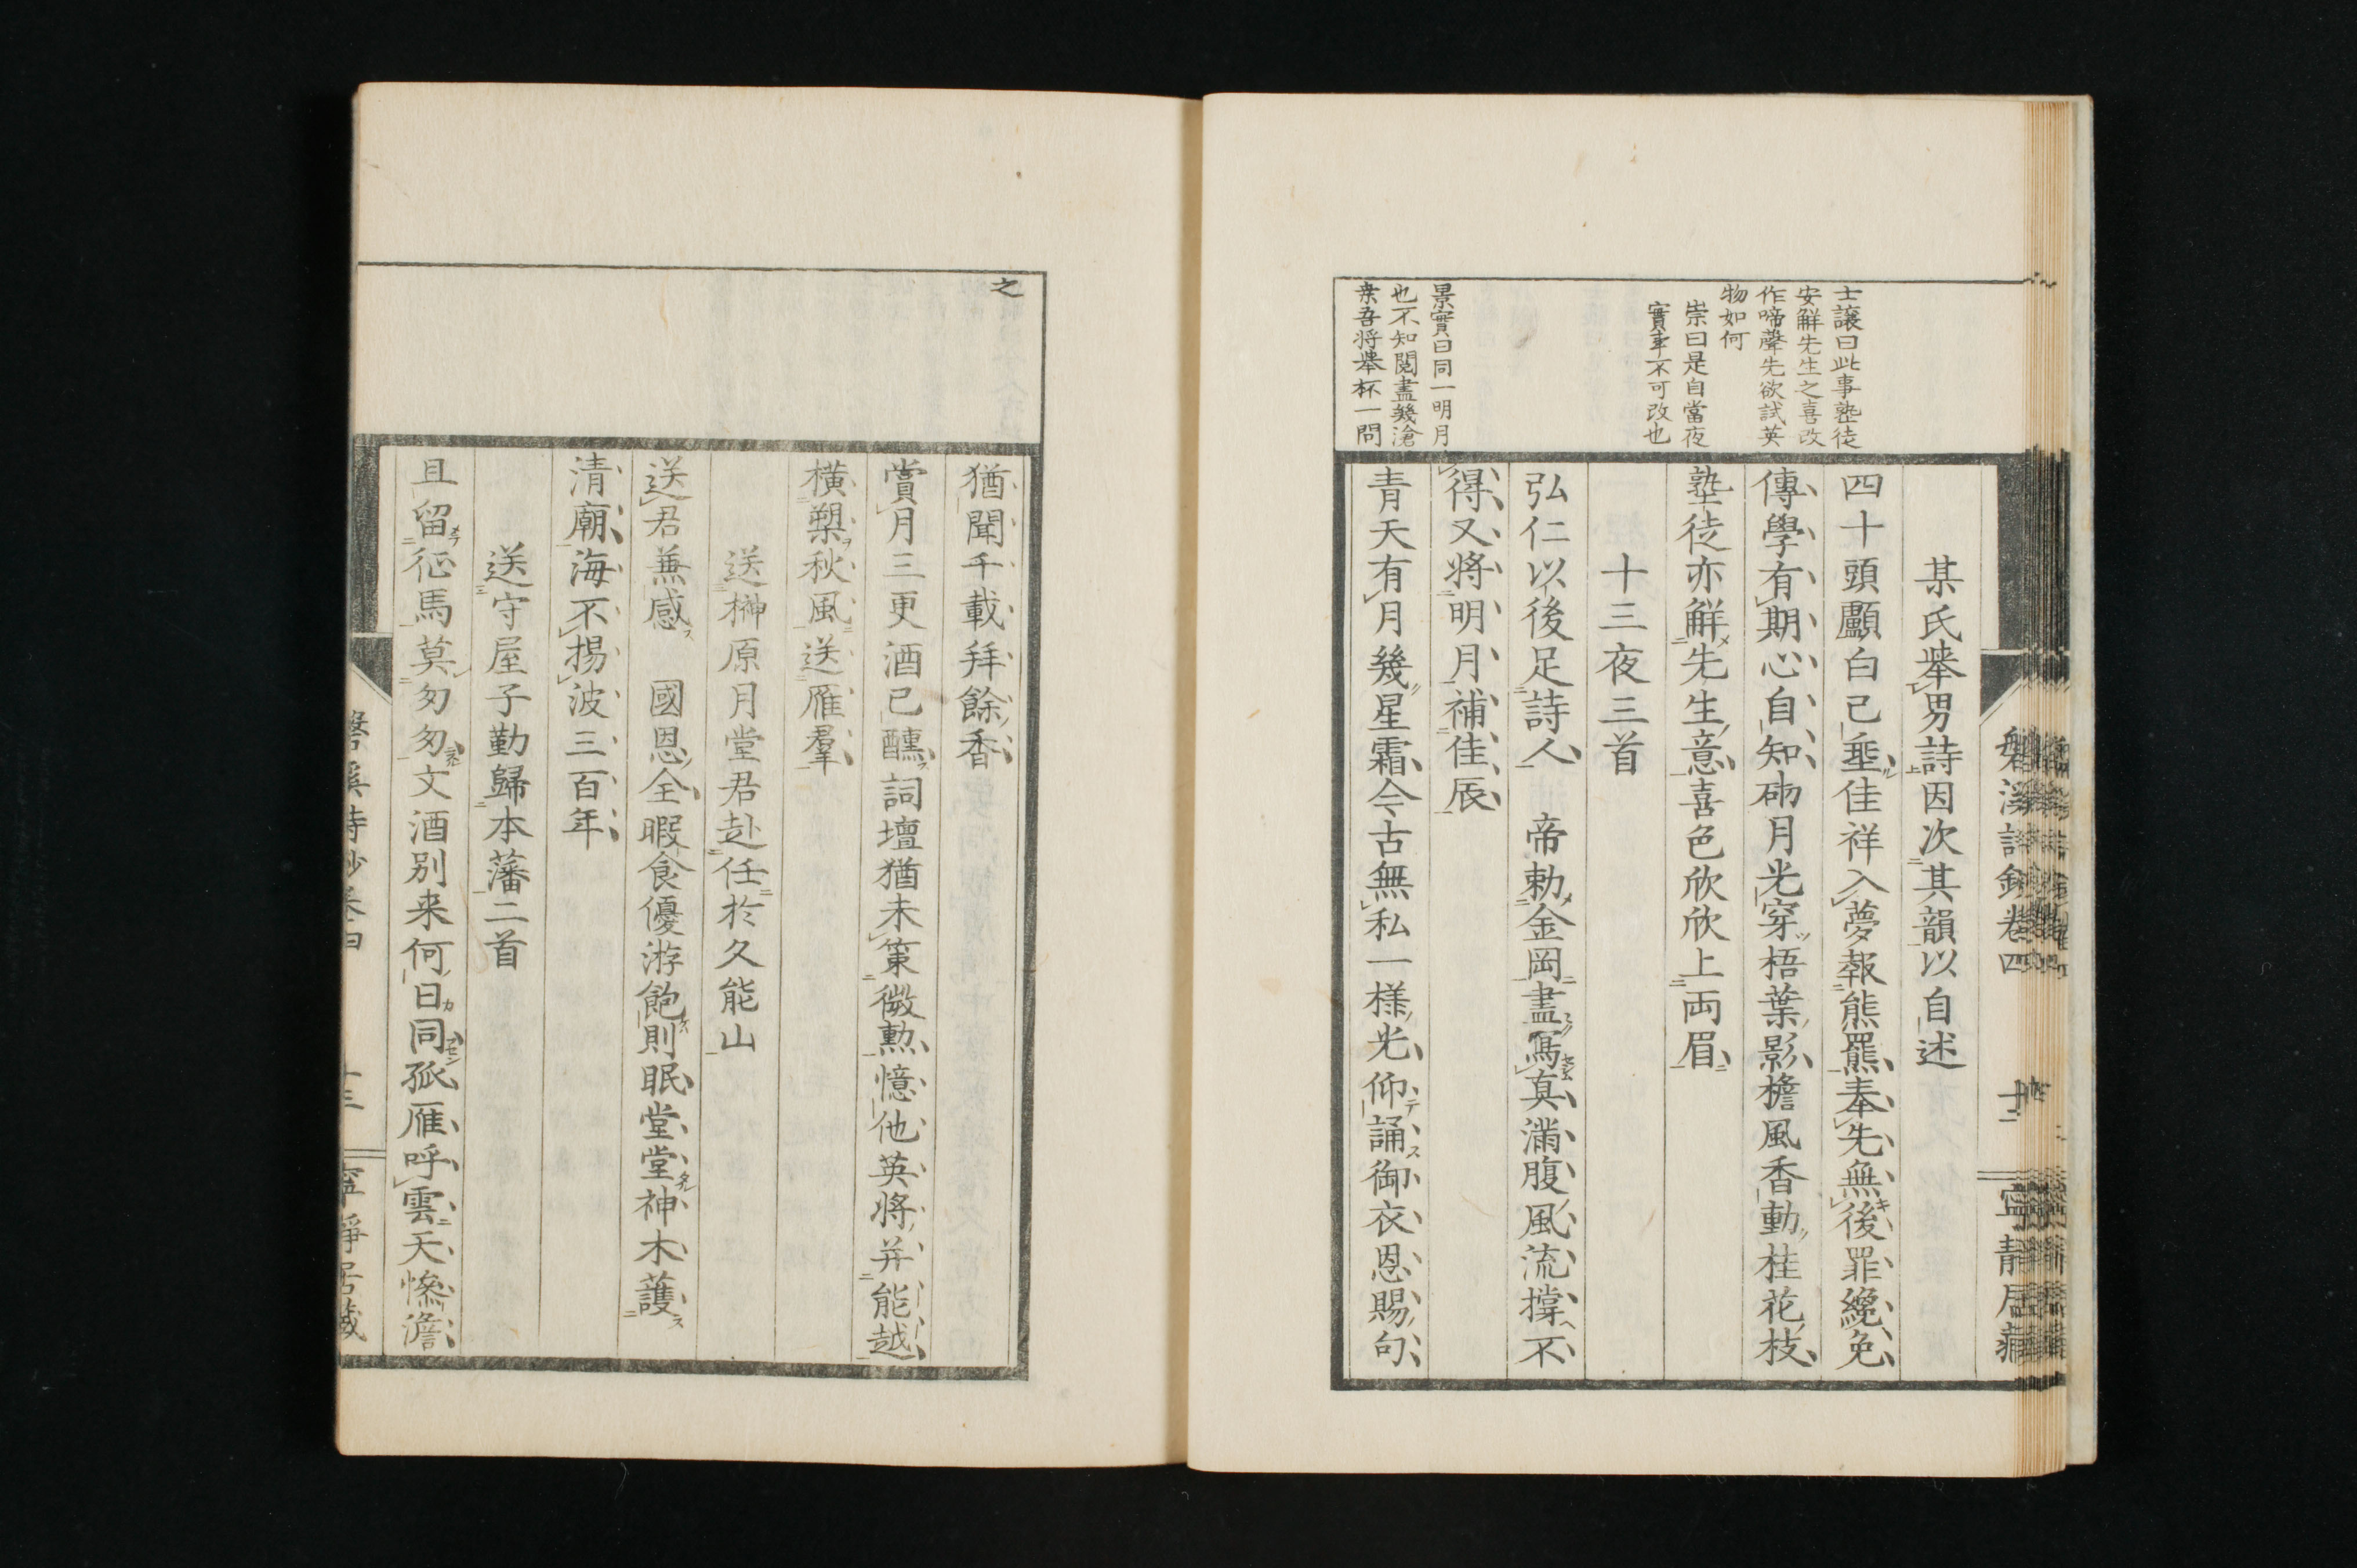 士讓曰此事塾徒
安解先生之喜改
作啼聲先欲試英
物如何
崇曰是自當夜
實事不可改也
景實曰同一明月
也不知閱盡幾滄
桒吾將擧杯一問
某氏擧男詩因次其韻以自述
四十頭顱白已埀佳祥入夢報熊羆奉先無後罪纔免
傳學有期心自知砌月光穿梧葉影檐風香動桂花枝
塾徒亦解先生意喜色欣欣上両眉
十三夜三首
弘仁以後足詩人　帝勅金岡畫寫真滿腹風流撑不
得又將明月補佳辰
青天有月幾星霜今古無私一様光仰誦御衣恩賜句
磐溪詩鈔卷四　十二　寧靜居藏
之
猶聞千載拜餘香
賞月三更酒已醺詞壇猶未策微勲憶他英將并能越
橫槊秋風送雁羣
送榊原月堂君赴任於久能山
送君兼感　國恩全暇食優游飽則眠堂堂神木護
清廟海不揚波三百年
送守屋子勤歸本藩二首
且留征馬莫匆匆文酒別来何日同孤雁呼雲天慘澹
磐溪詩鈔卷四　十三　寧靜居藏